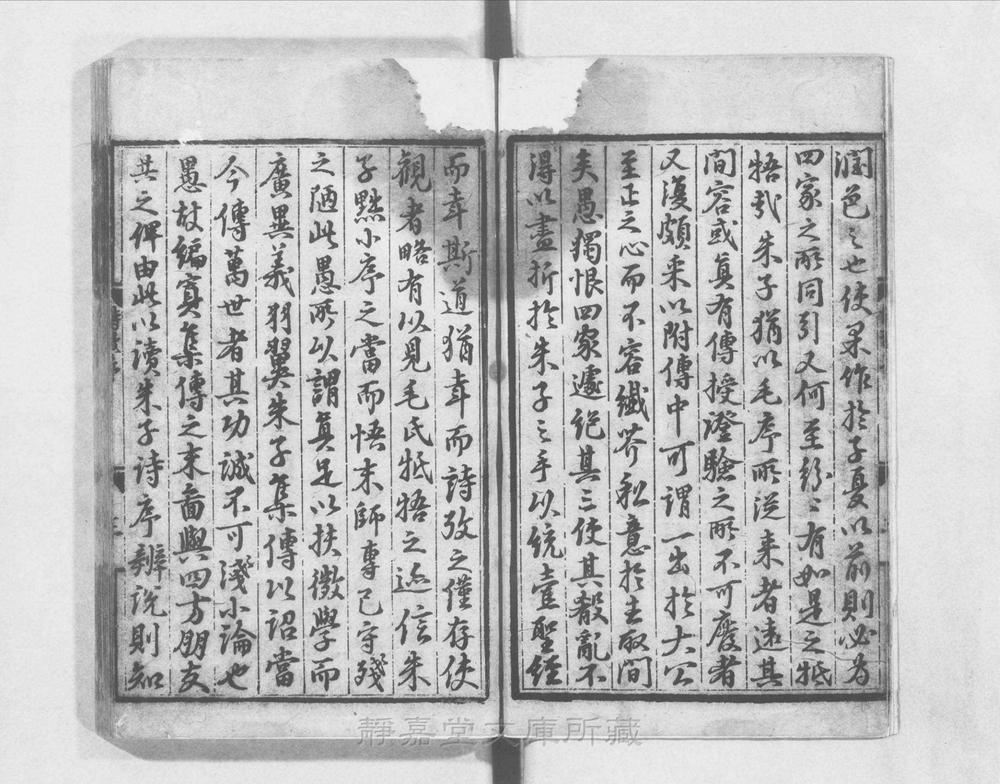 潤色之也使果作於子夏以前則必有
四家之所同引又何至紛〻有如是之牴
牾哉朱子猶以毛序所從来者遠其
間容或真有傳授澄驗之所不可廢者
又復頗采以附傳中可謂一出於大公
至正之心而不容纖芥私意於去取間
矣愚獨恨四家遽絶其三使其殽亂不
得以盡折於朱子之手以統壹聖經
而幸斯道猶幸而詩攷之僅存使
觀者略有以見毛氏牴牾之迹信朱
子黜小序之當而悟末師專己守殘
之陋此愚所以謂真足以扶微學而
廣異義羽翼朱子集傳以詔當
今傳萬世者其功誠不可淺小論也
愚故編寘集傳之末啚與四方朋友
共之俾由此以讀朱子詩序辨説則知
靜嘉堂文庫所藏